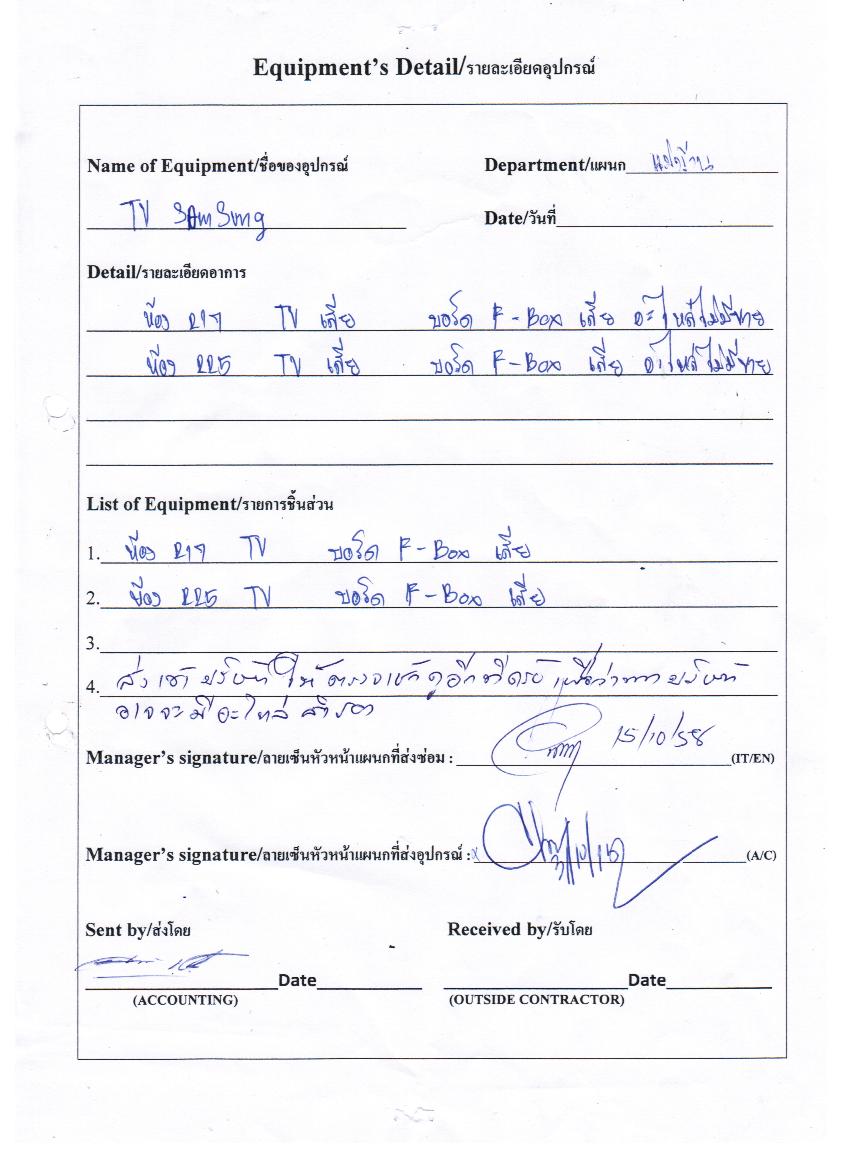 Equipment's Detail/รายละเอียดอุปกรณ์
Name of Equipment/ชื่อของอุปกรณ์ Department/แผนก แม่บ้าน
TV SAMSung Date/วันที่
Detail/รายละเอียดอาการ
ห้อง 217 TV เสีย บอร์ด F-Box เสีย อะไหล่ไม่มีขาย
ห้อง 225 TV เสีย บอร์ด F-Box เสีย อะไหล่ไม่มีขาย
List of Equipment/รายการชิ้นส่วน
1. ห้อง 217 TV บอร์ด F-Box เสีย
2. ห้อง 225 TV บอร์ด F-Box เสีย
3.
4. ส่งเข้าบริษัทให้ตรวจเช็คดูอีกที เผื่อว่าทางบริษัท
อาจจะมีอะไหล่
Manager's signature/ลายเซ็นหัวหน้าแผนกที่ส่งซ่อม : 15/10/58 (IT/EN)
Manager's signature/ลายเซ็นหัวหน้าแผนกที่ส่งอุปกรณ์ : (A/C)
Sent by/ส่งโดย Received by/รับโดย
Date Date
(ACCOUNTING) (OUTSIDE CONTRACTOR)